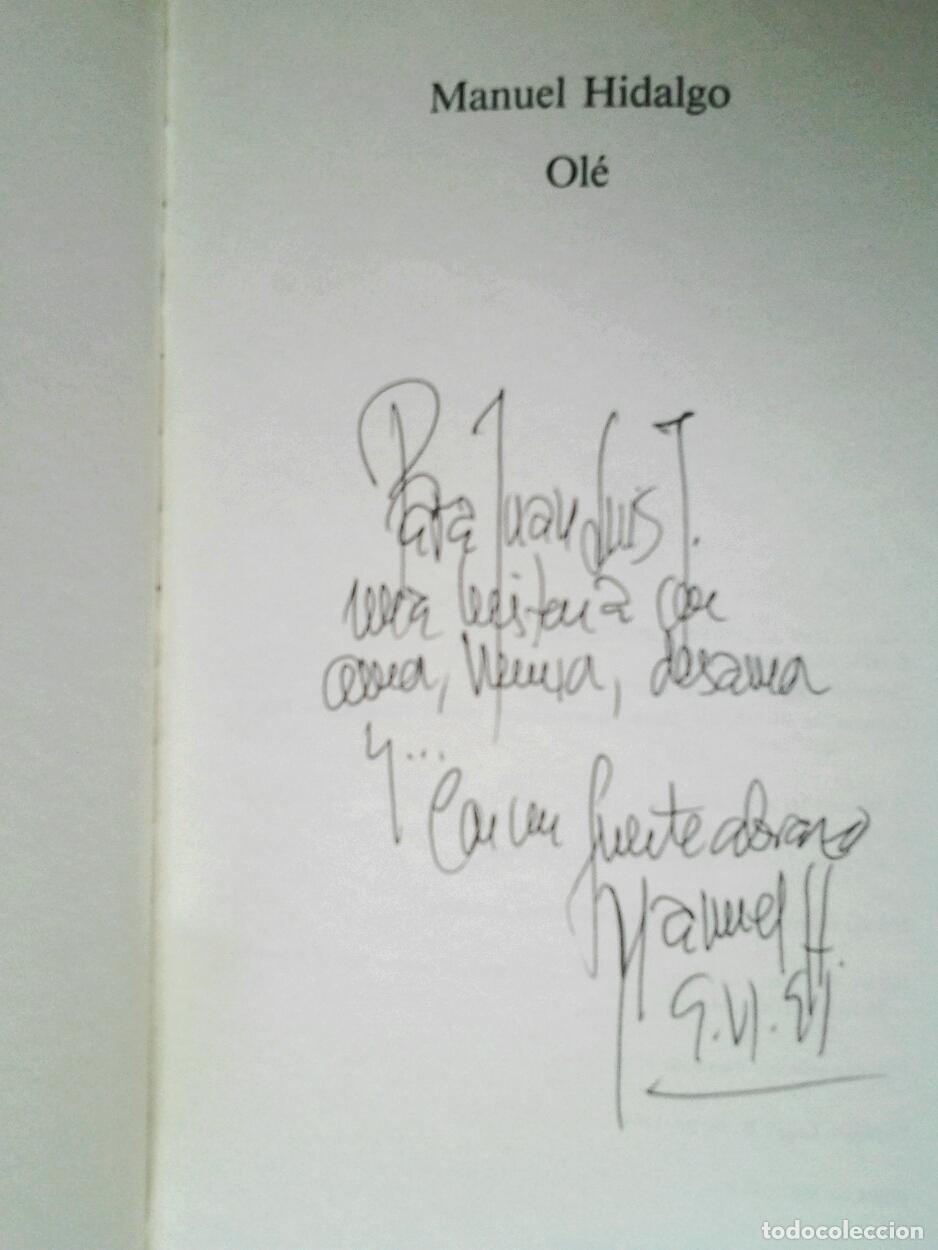 Manuel Hidalgo
Olé
Para Juan Luis J.
una historia con
cama, 
y...
Con un fuerte abrazo
Manuel H.
9.VI.91
todocoleccion